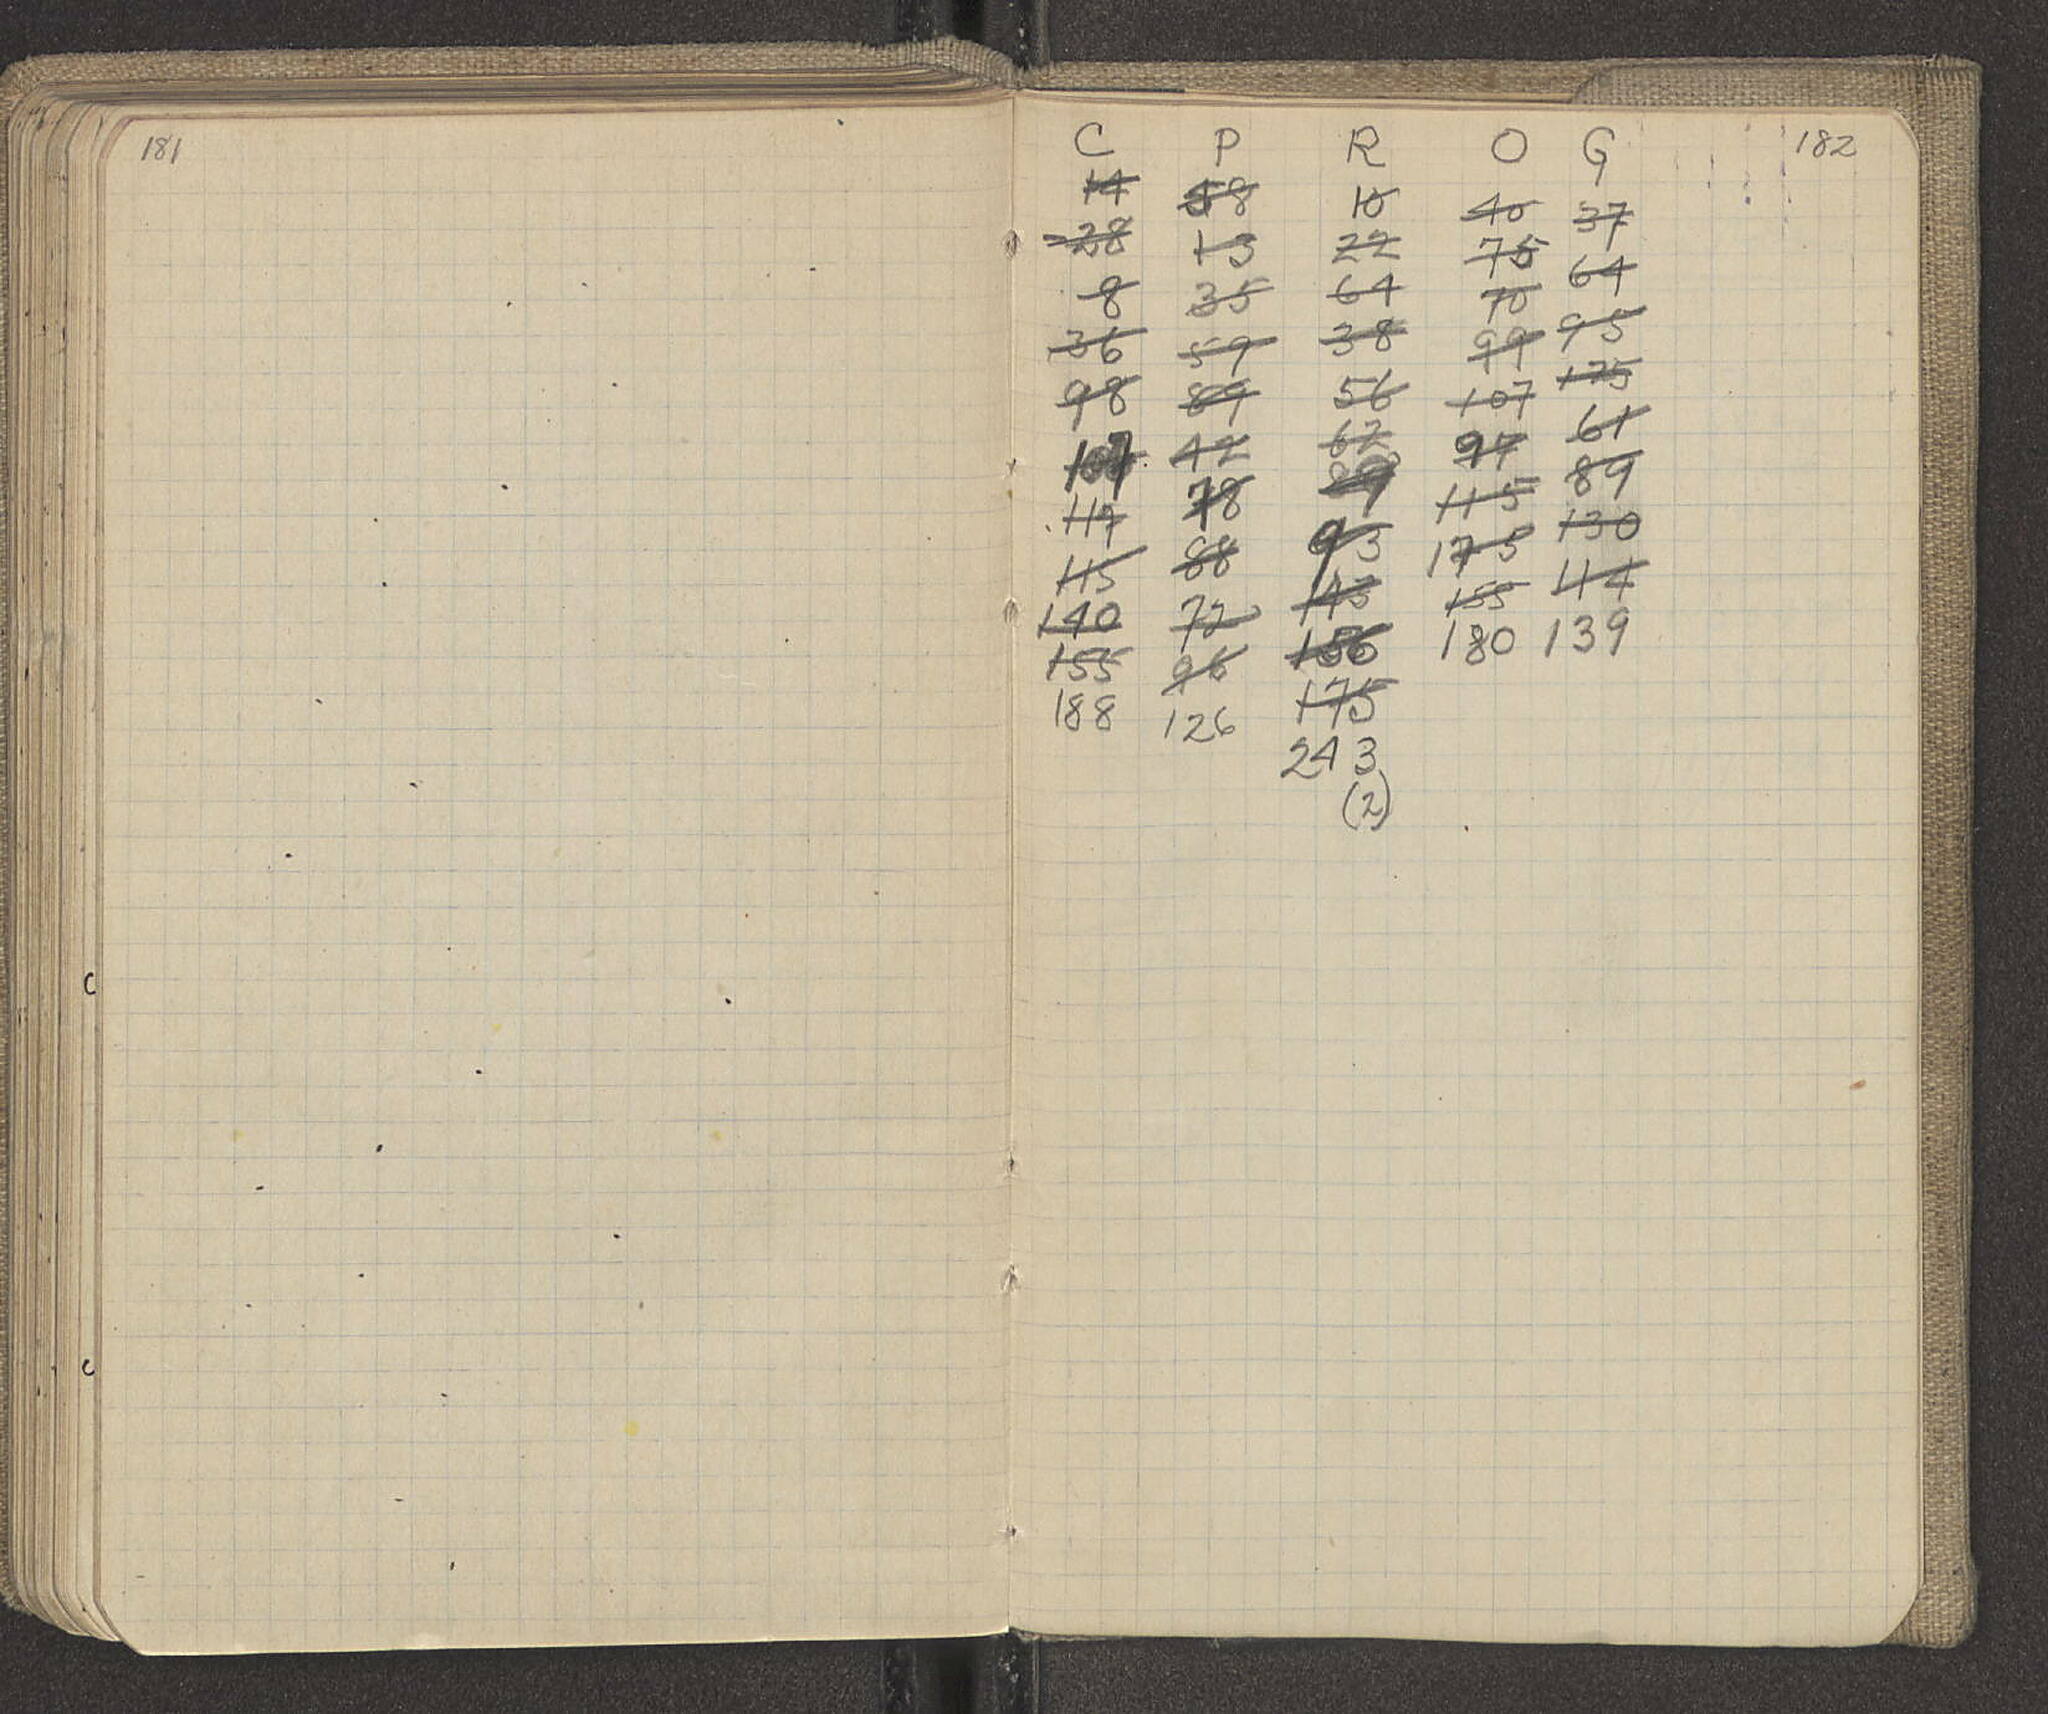 181
182
C P R O G
14 58 10 40 37
28 13 22 75 64
8 35 64 70 95
36 59 38 99 175
98 89 56 107 61
107 42 62 97 89
117 78 89 115 130
115 88 93 175 114
140 72 143 155 139
155 96 156 180
188 126 175
243
(2)